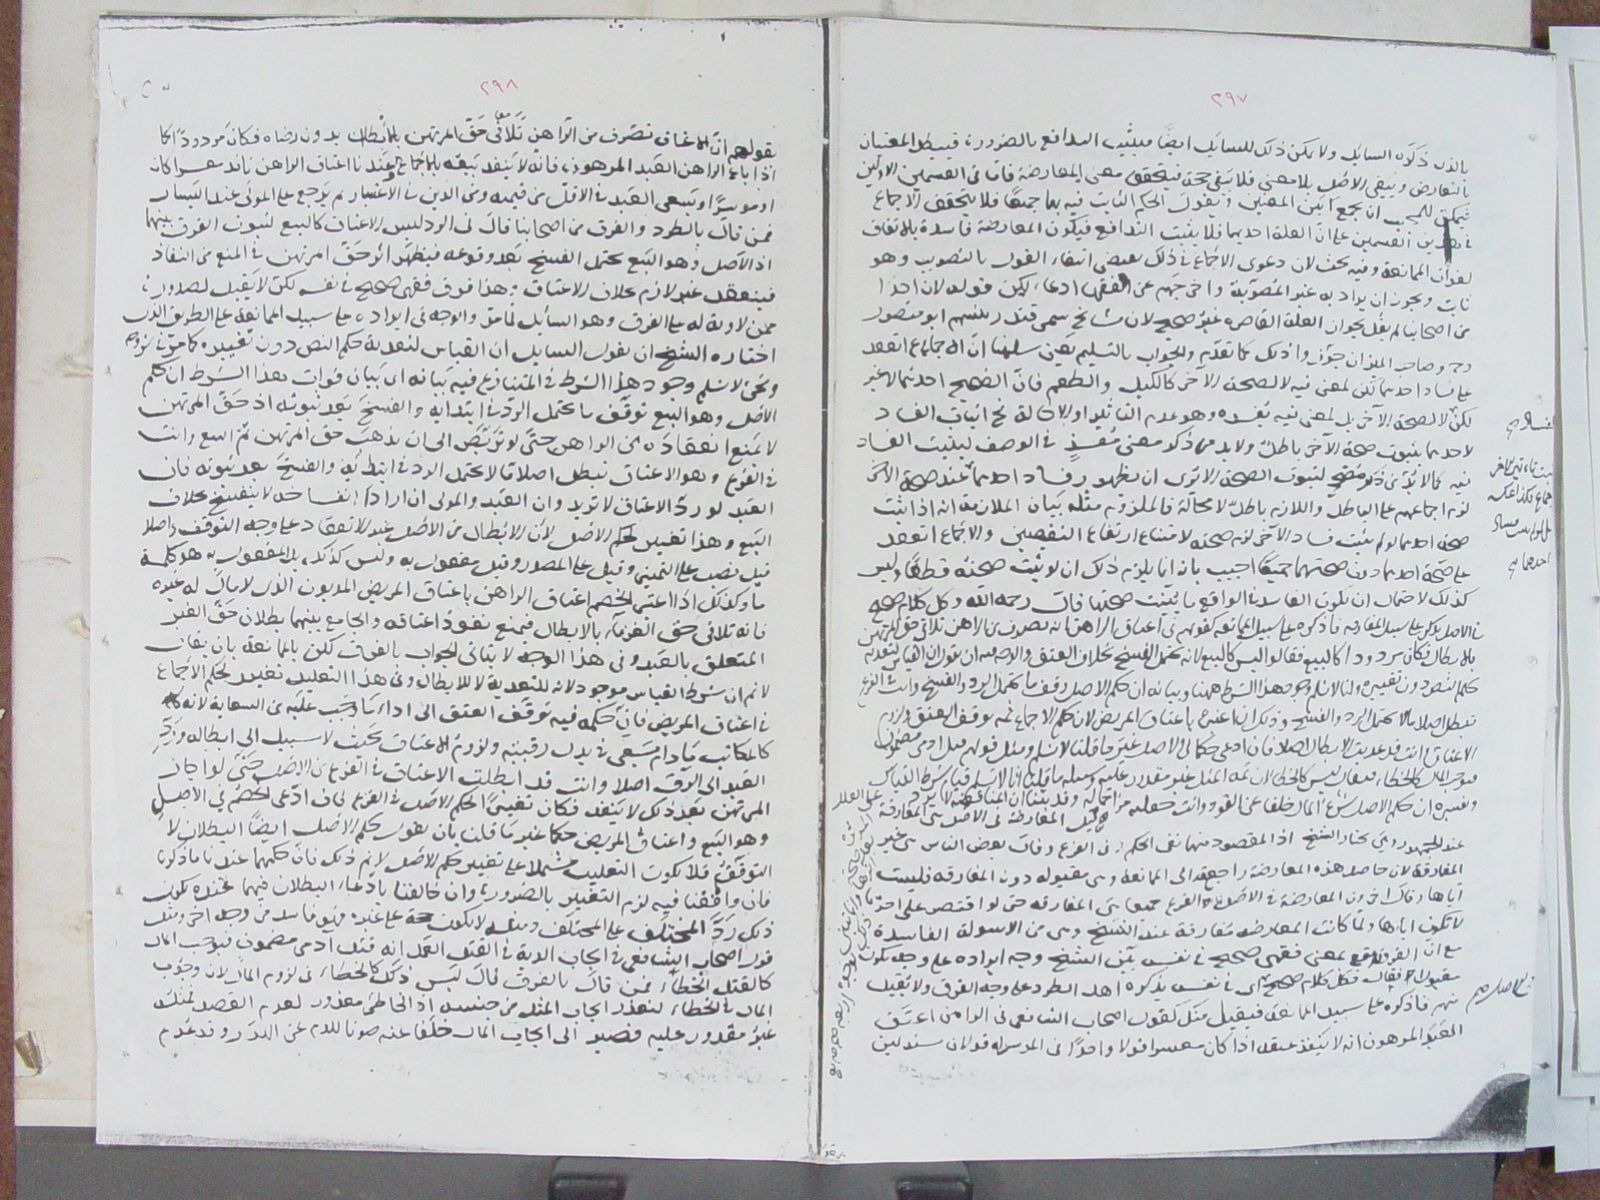 ٢٩٧
بالذى ذكره السايل ولا يمكن ذلك للسايل ايضًا فيثبت التدافع بالضرورة فيبطل المعنيان
بالتعارض ويبقى الاصل بلا معنى فلا يبقى حجة فيتحقق معنى المعارضة فاما فى القسمين الاولين
فيمكن للمجيب ان يجمع بين المعنيين ويقول الحكم الثابت فيه بهما جميعًا فلا يتحقق الاجماع
فى هذين القسمين على ان العلة احديهما فلا يثبت التدافع فيكون المعارضة فاسدة بالاتفاق
لفوات الممانعة وفيه بحث لان دعوى الاجماع فى ذلك يقتضى انتفاء القول بالتصويب وهو
ثابت ويجوز ان يراد به غير المصوبة واخرجهم عن الفقهى ادعاء لكن قوله لان احدًا
من اصحابنا لم يقل بجواز العلة القاصرة غير صحيح لان مشايخ سمرقند رئيسهم ابو منصور
رحمه وصاحب الميزان جوزوا ذلك كما تقدم والجواب بالتسليم يعنى سلمنا ان الاجماع انعقد
على فساد احديهما لكن لمعنى فيه لا لصحة الآخر كالكيل والطعم فان الصحيح احديهما لا غير
لكن لا لصحة الآخر بل لمعنى فيه يفسده وهو عدم التاثير او الاخالة نخ اثبات الفساد
لاحدهما بثبوت صحة الآخر باطل ولا بد من ذكر معنى مفسد فى الوصف ليثبت الفساد
فيه كما لا بد من ذكر معنى لثبوت الصحة الا ترى ان بظهور فساد احديهما عند صحة الآخر
لزم اجماعهم على الباطل واللازم باطل لا محالة فالملزوم مثله بيان الملازمة انه اذا ثبت
صحة احديهما ولم يثبت فساد الآخر لزم صحته لامتناع ارتفاع النقيضين والاجماع انعقد
على صحة احديهما دون صحتهما جميعًا اجيب بانه انما يلزم ذلك ان لو ثبت صحته قطعًا وليس
كذلك لاحتمال ان يكون الفاسد فى الواقع ما يثبت صحتها قال رحمه الله وكل كلام صحيح
فى الاصل يذكر على سبيل المفارقة فاذكره على سبيل الممانعة كقولهم فى اعتاق الراهن انه تصرف من الراهن تلاقى حق المرتهن
بالابطال فكان مردودا كالبيع فقالوا ليس كالبيع لانه يحتمل الفسخ بخلاف العتق والوجه فيه ان نقول ان القياس لتعدية
حكم النص دون تغييره وانا لا نسلم وجود هذا الشرط ههنا وبيانه ان حكم الاصل وقف ما يحتمل الرد والفسخ وانت فى الفرع
تبطل اصلا ما لا يحتمل الرد والفسخ وذلك ان اعتبره باعتاق المريض لان حكم الاجماع ثمه توقف العتق ولزوم
الاعتاق وانت قد عديت الابطال اصلا فان ادعى حكما فى الاصل غير ما قلنا لا نسلم ومثل قولهم قتل ادمى مضمون
فيوجب المال كالخطاء فيقال ليس كالخطا لان ثمه المثل غير مقدور عليه وسبيله ما قلنا انا لا نسلم قيام شرط القياس
وتفسيره ان حكم الاصل شرع المال خلفا عن القود وانت جعلته مزاحما له وقد بينا ان المناقضة لا ترد على العلل
عند الجمهور وهى مختار الشيخ اذا المقصود منها نفى الحكم فى الفرع وقال بعض الناس هى غير
المفارقة لان حاصل هذه المعارضة راجعة الى الممانعة وهى مقبولة دون المفارقة فليست
اياها وقال اخرون المعارضة فى الاصل والفرع جميعا هى المفارقة حتى لو اقتصر على احدهما
لا تكون اياها ولما كانت المعارضة مفارقة عند الشيخ وهى من الاسولة الفاسدة
مع ان الفرق قد يقع بمعنى فقهى صحيح فى نفسه بين الشيخ وجه ايراده على وجه يكون
مقبولا فقال فكل كلام صحيح اى فى نفسه يذكره اهل الطرد على وجه الفرق ولا يقبل
منهم فاذكره على سبيل الممانعة فيقبل منك كقول اصحاب الشافعى فى الراهن اعتق
العبد المرهون انه لا ينفذ عتقه اذا كان معسرا قولا واحدًا فى الموسر له قولان مستدلين
الفساد صح
احدهما صح
فى الاصل صح
٢٩٨
بقولهم انّ الاعتاق تصرف من الراهن تلاقى حق المرتهن بالابطال بدون رضاه فكان مردودًا كما
اذا باع الراهن العبد المرهون فانه لا ينفذ بيعه بالاجماع وعندنا اعتاق الراهن نافذ معسرا كان
او موسرًا ويسعى العبد فى الاقل من قيمته ومن الدين فى الاعسار ثم يرجع على المولى عند اليسار
فمن قال بالطرد والفرق من اصحابنا قال فى الرد ليس الاعتاق كالبيع لثبوت الفرق بينهما
اذ الاصل وهو البيع يحتمل الفسخ بعد وقوعه فيظهر اثر حق المرتهن فى المنع من النفاذ
فينعقد غير لازم بخلاف الاعتاق وهذا فرق فقهى صحيح فى نفسه لكن لا يقبل لصدوره
ممن لا ولاية له على الفرق وهو السائل لما مر والوجه فى ايراده على سبيل الممانعة على الطريق الذى
اختاره الشيخ ان يقول السايل ان القياس لتعدية حكم النص دون تغييره كما مر فى شروطه
ونحن لا نسلم وجود هذا الشرط فى المتنازع فيه بيانه اى بيان فوات هذا الشرط ان حكم
الاصل وهو البيع توقف ما يحتمل الرد فى ابتدايه والفسخ بعد ثبوته اذ حق المرتهن
لا يمنع انعقاده من الراهن حتى لو تربص الى ان يذهب حق المرتهن تم البيع وانت
فى الفرع وهو الاعتاق تبطل اصلا ما لا يحتمل الرد فى ابتدايه والفسخ بعد ثبوته فان
العبد لو رد الاعتاق لا يرتد وان العبد والمولى ان ارادا انفساخه لا ينفسخ بخلاف
البيع وهذا تغيير لحكم الاصل لان الابطال من الاصل غير الانعقاد على وجه التوقف واصلا
قيل نصب على التمييز وقيل على المصدر وقيل مفعول به وليس كذلك بل المفعول به هو كلمة
ما وكذلك اذا اعتبر الخصم اعتاق الراهن باعتاق المريض المديون الذى لا مال له غيره
فانه تلاقى حق الغرماء بالابطال فيمنع نفوذ اعتاقه والجامع بينهما بطلان حق الغير
المتعلق بالعبد وفى هذا الوجه لا يتاتى الجواب بالفرق لكن بالممانعة بان يقال
لا نم ان شرط القياس موجود لانه للتعدية لا للابطال وفى هذا التعليل تغيير لحكم الاجماع
فى اعتاق المريض فان حكمه فيه توقف العتق الى اداء ما وجب عليه من السعاية لانه
كالمكاتب مادام يسعى فى بدل رقبته ولزوم الاعتاق بحيث لا سبيل الى ابطاله ورد
العبد الى الرق اصلا وانت قد ابطلت الاعتاق فى الفرع من الاصل حتى لو اجاز
المرتهن بعد ذلك لا ينفذ فكان تغييرًا لحكم الاصل فى الفرع فان ادعى الخصم فى الاصل
وهو البيع واعتاق المريض حكما غير ما قلنا بان يقول حكم الاصل ايضًا البطلان لا
التوقف فلا يكون التعليل مشتملا على تغيير حكم الاصل لا نم ذلك فان حكمهما عندنا ما ذكرنا
فان وافقنا فيه لزم التغيير بالضرورة وان خالفنا بادعاء البطلان فيهما عنده يكون
ذلك رد المختلف على المختلف ومثله لا يكون حجة على غيره فهو فاسد من وجه آخر ومثل
قول اصحاب الشافعى فى ايجاب الدية فى القتل العمد انه قتل ادمى مضمون فيوجب المال
كالقتل الخطاء فمن قال بالفرق قال ليس ذلك كالخطاء فى لزوم المال لان وجوب
المال فى الخطاء لتعذر ايجاب المثل من جنسه اذ الخاطى معذور لعدم القصد فمثله
غير مقدور عليه فصير الى ايجاب المال خلفا عنه صونا للدم عن الهدر وقد عدم